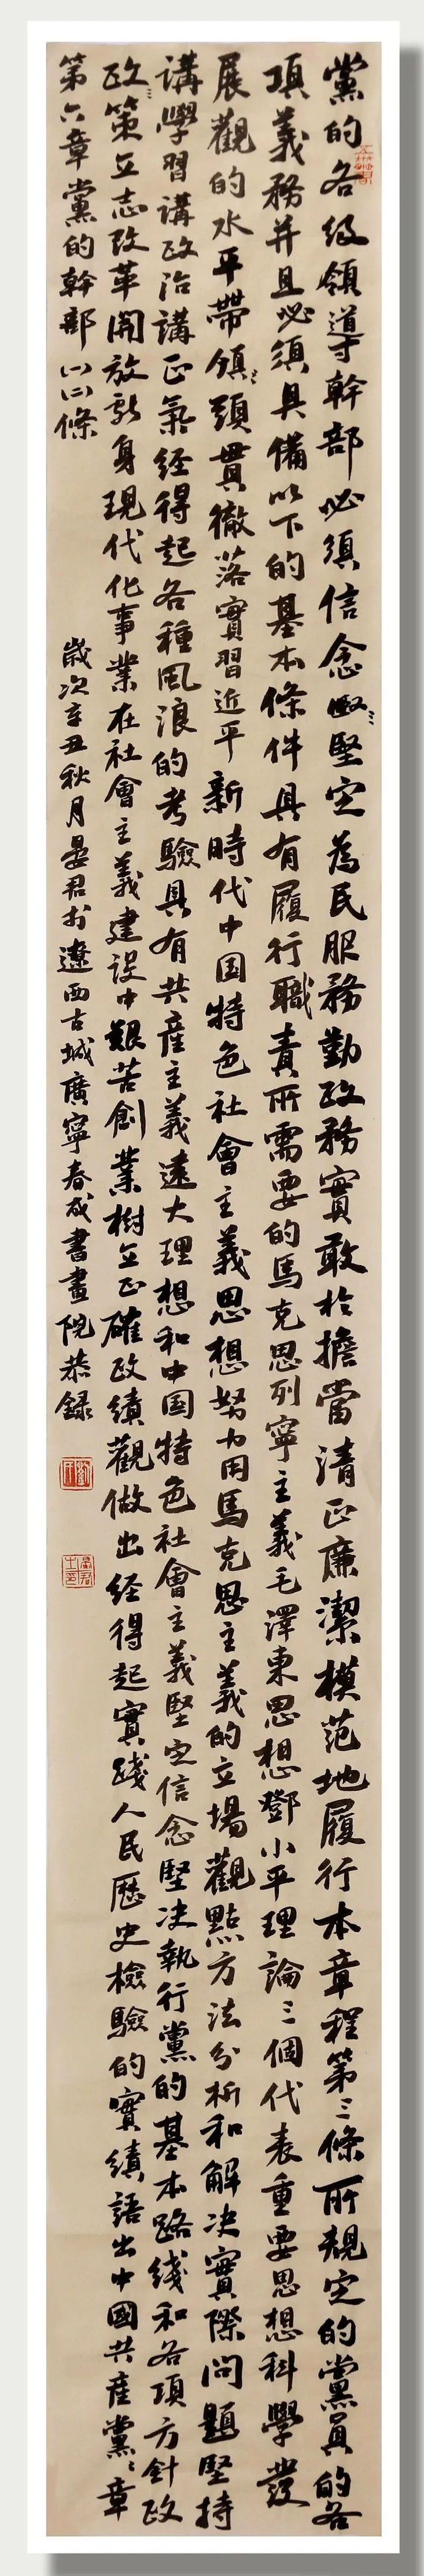 黨的各級領導干幹部必須信念堅堅定為民服務勤政務實敢於擔當清正廉潔模范地履行本章程第三條所規定的黨員的各
項義務并且必須具備以下的基本條件具有履行職責所需要的馬克思列寧主義毛澤東思想鄧小平理論三個代表重要思想科學發
展觀的水平帶領頭貫徹落實習近平新時代中国特色社會主義思想努力用馬克思主義的立場觀點方法分析和解決實際問題堅持
講學習講政治講正氣經得起各種風浪的考驗具有共産主義遠大理想和中国特色社會主義堅定信念堅決執行黨的基本路綫和各項方針政
政策立志改革開放獻身現代化事業在社會主義建設中艱苦創業樹立正確政績觀做出经得起實踐人民歷史檢驗的實績語出中國共産黨章
第六章黨的幹部
歲次辛丑秋月晏君於遼西古城廣寧春成書畫院恭錄